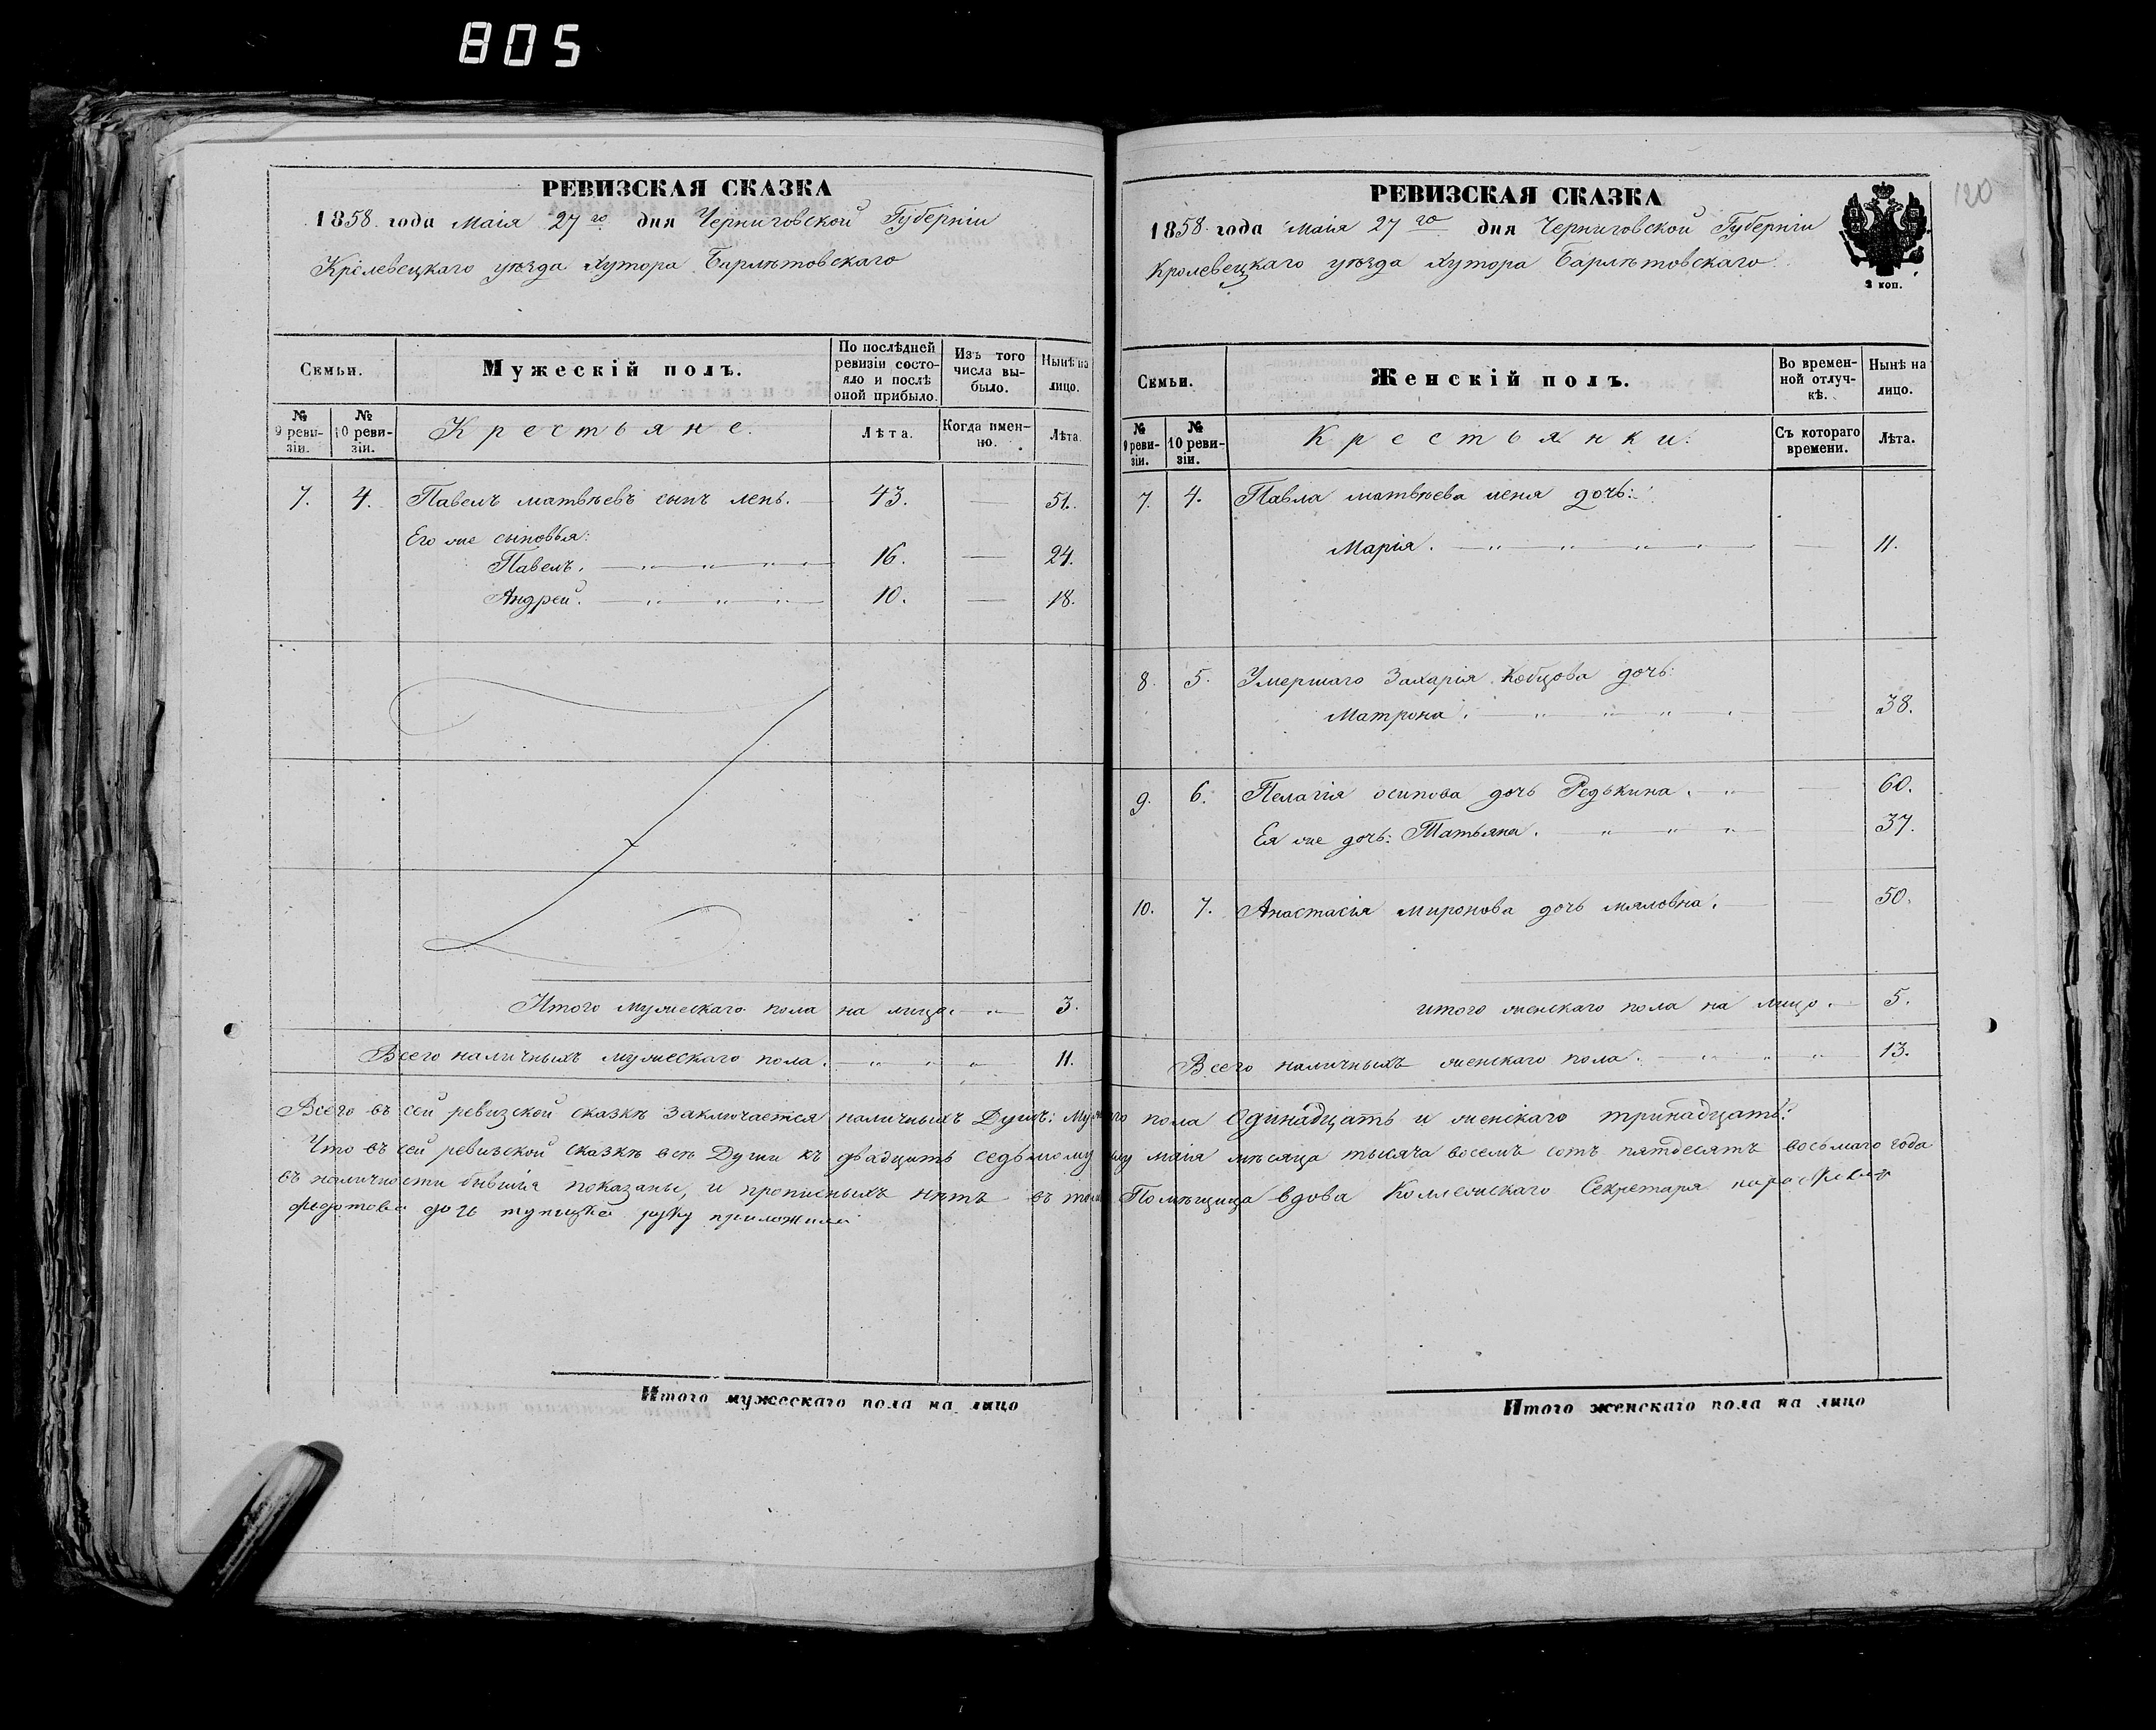 805
РЕВИЗСКАЯ СКАЗКА
1858 года Маія 27го дня Черниговской Губерніи
Кролевецкаго уѣзда Хутора Барлѣтовскаго
Семьи.
Мужескій полъ.
По послѣдней ревизіи состояло и послѣ оной прибыло.
Изъ того числа выбыло.
Нынѣ на лицо.
№ 9 ревизіи.
№ 10 ревизіи.
Крестьяне.
Лѣта.
Когда именно.
Лѣта.
7. 4. Павелъ матвѣевъ сынъ лень. 43. — 51.
Его же сыновья:
Павелъ. 16. — 24.
Андрей. 10. — 18.
Итого мужескаго пола на лицо. 3.
Всего наличныхъ мужескаго пола. 11.
РЕВИЗСКАЯ СКАЗКА
1858 года маія 27го дня Черниговской Губерніи
Кролевецкаго уѣзда Хутора Барлѣтовскаго
2 коп.
120
Семьи.
Женскій полъ.
Во временной отлучкѣ.
Нынѣ на лицо.
№ 9 ревизіи.
№ 10 ревизіи.
Крестьянки.
Съ котораго времени.
Лѣта.
7. 4. Павла матвѣева леня дочь:
Марія. — 11.
8. 5. Умершаго Захарія Кобцова дочь:
Матрона. 38.
9. 6. Пелагія осипова дочь Редькина. — 60.
Ея же дочь: Татьяна. 37.
10. 7. Анастасія миронова дочь мяловна. — 50.
итого женскаго пола на лицо. 5.
Всего наличныхъ женскаго пола. 13.
Всего въ сей ревизской сказкѣ заключается наличныхъ Душъ: пола Одинадцать и женскаго тринадцать.
Что въ сей ревизской сказкѣ всѣ Души къ двадцать седьмому маія мѣсяца тысяча восемь сотъ пятдесятъ восьмаго года
въ наличности бывшія показаны, и прописныхъ нѣтъ въ томъ Помѣщица вдова Коллежскаго Секретаря
федотова дочь руку приложила
Итого мужескаго пола на лицо
Итого женскаго пола на лицо